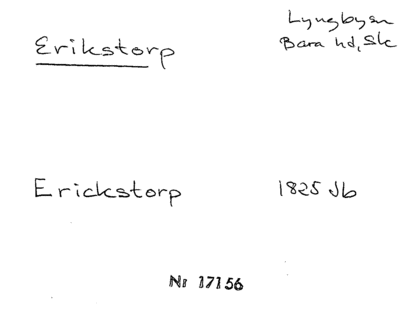 Erikstorp
Lyngbysn
Bara hd, Sk
Erickstorp
1825 Jb
Nr 17156